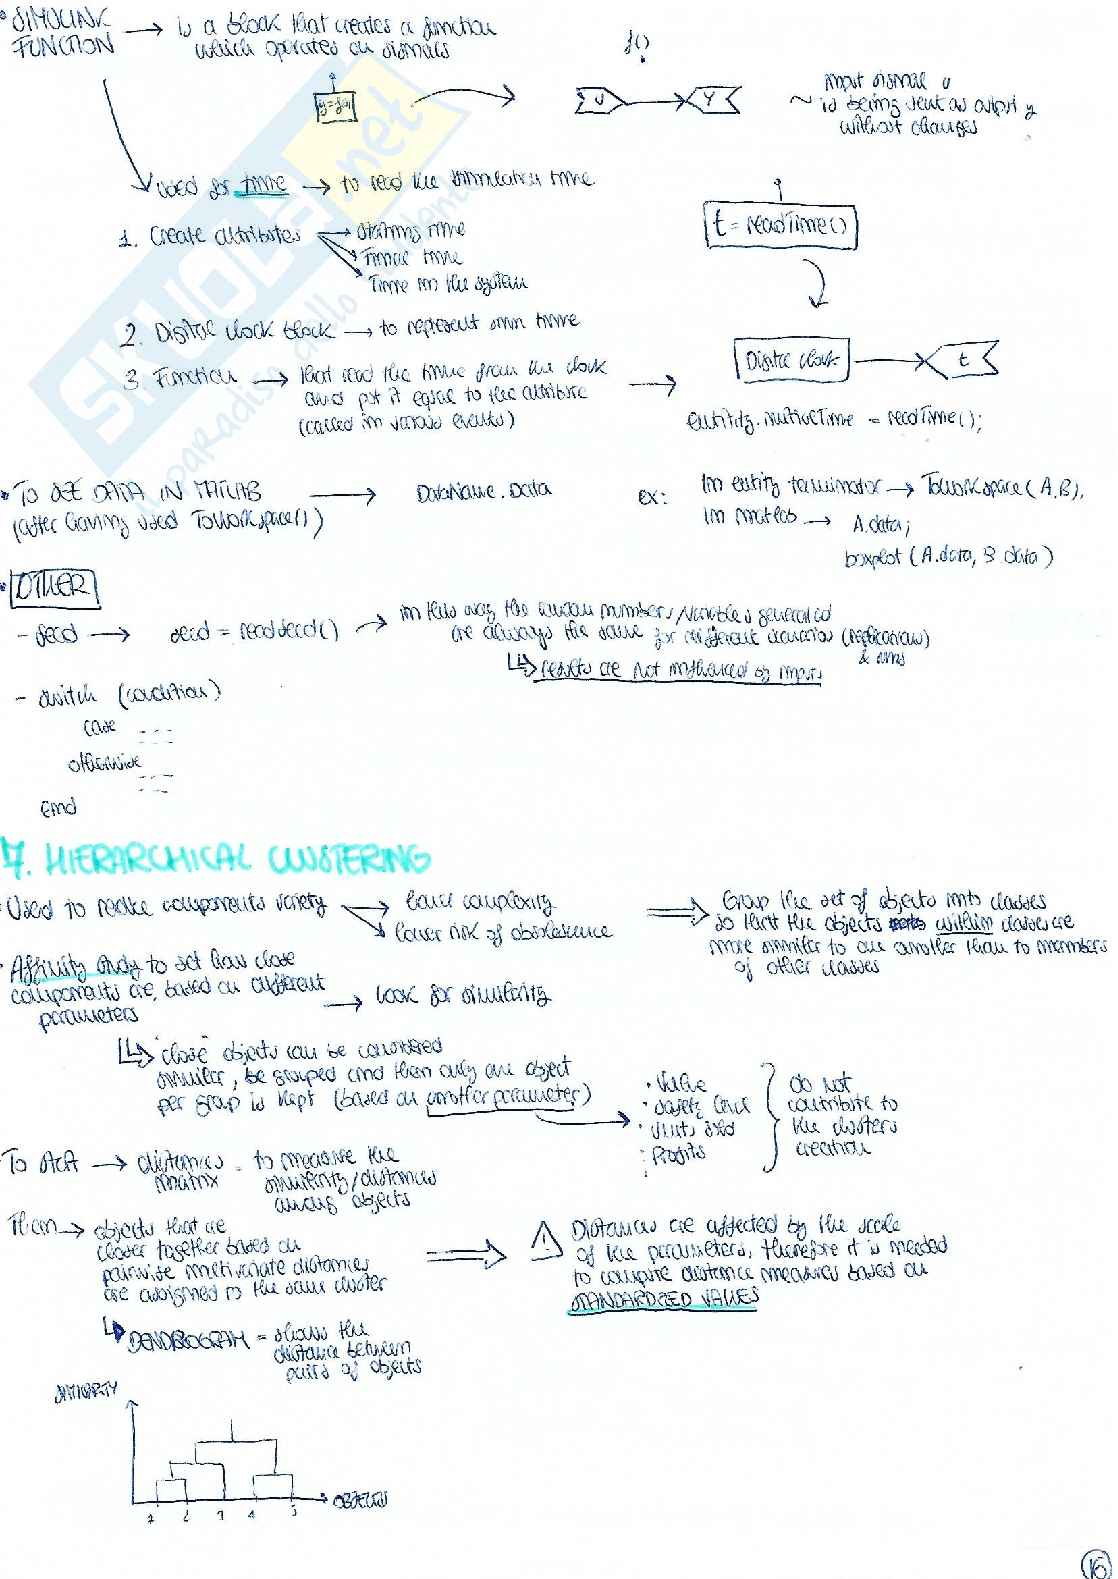 • SIMULINK FUNCTION → is a block that creates a function
which operates on signals
f()
y=f(u)
U → Y
input signal u
~ is being sent as output y
without changes
Used for time → to read the simulation time
t = readTime()
1. Create attributes → starting time
Final time
Time in the system
2. Digital clock block → to represent sim time
3. Function → that read the time from the clock
and put it equal to the attribute
(called in various events)
Digital clock → t
entity. = readTime();
• TO SEE DATA IN MATLAB → DataName.Data
(after having used ToWorkspace())
ex: In entity terminator → ToWorkspace(A,B),
In matlab → A.data;
boxplot (A.data, B data)
• OTHER
- seed → seed = readSeed() → in this way the random numbers/variables generated
are always the same for different scenarios (replications)
& runs
↳ results are not influenced by inputs
- switch (condition)
case ---
otherwise
---
end
7. HIERARCHICAL CLUSTERING
• Used to reduce components variety → lower complexity
lower risk of obsolescence
⇒ Group the set of objects into classes
so that the objects within classes are
more similar to one another than to members
of other classes
• Affinity study to set how close
components are, based on different → look for similarity
parameters
↳ "close" objects can be considered
similar, be grouped and then only one object
per group is kept (based on another parameter) →
• Value
• Safety level
• Units sold
• Profits
do not
contribute to
the clusters
creation
To start → distances matrix - to measure the
similarity/distances
among objects
Then → objects that are
closer together based on
pairwise multivariate distances
are assigned to the same cluster
⇒ ⚠ Distances are affected by the scale
of the parameters, therefore it is needed
to compute distance measures based on
STANDARDIZED VALUES
↳ DENDROGRAM = shows the
distance between
pairs of objects
SIMILARITY
OBJECTS
1 2 3 4 5
16
SKUOLA.net
il paradiso dello studente